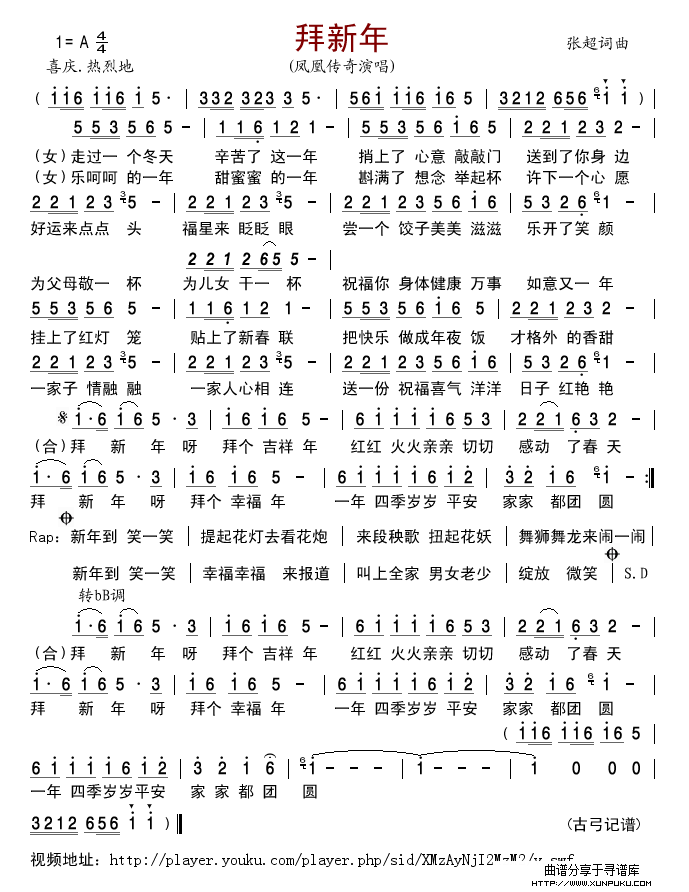 拜新年
1= A 4/4
张超词曲
喜庆.热烈地
(凤凰传奇演唱)
( i i 6 i i 6 i 5 · | 3 3 2 3 2 3 5 · | 5 6 i i i 6 i 6 5 | 3 2 1 2 6 5 6 i i ) |
5 5 3 5 6 5 - | 1 1 6 1 2 1 - | 5 5 3 5 6 5 i 6 5 | 2 2 1 2 3 2 - |
(女)走过一 个冬天 辛苦了 这一年 捎上了 心意 敲敲门 送到了你身 边
(女)乐呵呵 的一年 甜蜜蜜 的一年 斟满了 想念 举起杯 许下一个心 愿
2 2 1 2 3 5 - | 2 2 1 2 3 5 - | 2 2 1 2 3 5 6 i 6 | 5 5 3 2 6 i - |
好运来点点 头 福星来 眨眨 眼 尝一个 饺子美美 滋滋 乐开了笑 颜
2 2 1 2 6 5 5 - |
为父母敬一 杯 为儿女 干一 杯 祝福你 身体健康 万事 如意又一 年
5 5 3 5 6 5 - | 1 1 6 1 2 1 - | 5 5 3 5 6 i 6 5 | 2 2 1 2 3 2 - |
挂上了红灯 笼 贴上了新春 联 把快乐 做成年夜 饭 才格外 的香甜
2 2 1 2 3 5 - | 2 2 1 2 3 5 - | 2 2 1 2 3 5 6 i 6 | 5 5 3 2 6 i - |
一家子 情融 融 一家人心相 连 送一份 祝福喜气 洋洋 日子 红艳 艳
i · 6 i 6 5 · 3 | i 6 i 6 5 - | 6 i i i i 6 5 3 | 2 2 1 6 3 2 - |
(合)拜 新 年 呀 拜个 吉祥 年 红红 火火亲亲 切切 感动 了春 天
i · 6 i 6 5 · 3 | i 6 i 6 5 - | 6 i i i i 6 i 2 | 3 2 i 6 i - :||
拜 新 年 呀 拜个 幸福 年 一年 四季岁岁 平安 家家 都团 圆
Rap: 新年到 笑一笑 | 提起花灯去看花炮 | 来段秧歌 扭起花妖 | 舞狮舞龙来闹一闹 |
新年到 笑一笑 | 幸福幸福 来报道 | 叫上全家 男女老少 | 绽放 微笑 | S.D
转bB调
i · 6 i 6 5 · 3 | i 6 i 6 5 - | 6 i i i i 6 5 3 | 2 2 1 6 3 2 - |
(合)拜 新 年 呀 拜个 吉祥 年 红红 火火亲亲 切切 感动 了春 天
i · 6 i 6 5 · 3 | i 6 i 6 5 - | 6 i i i i 6 i 2 | 3 2 i 6 i - |
拜 新 年 呀 拜个 幸福 年 一年 四季岁岁 平安 家家 都团 圆
( i i 6 i i 6 i 6 5 |
6 i i i i 6 i 2 | 3 2 i 6 | i - - - | i - - - | i 0 0 0 |
一年 四季岁岁平安 家 家 都 团 圆
3 2 1 2 6 5 6 i i ) ||
(古弓记谱)
视频地址: http://player.youku.com/player.php/sid/XMzAyNjI2MzM2/v.swf
曲谱分享于寻谱库
www.xunpuku.com